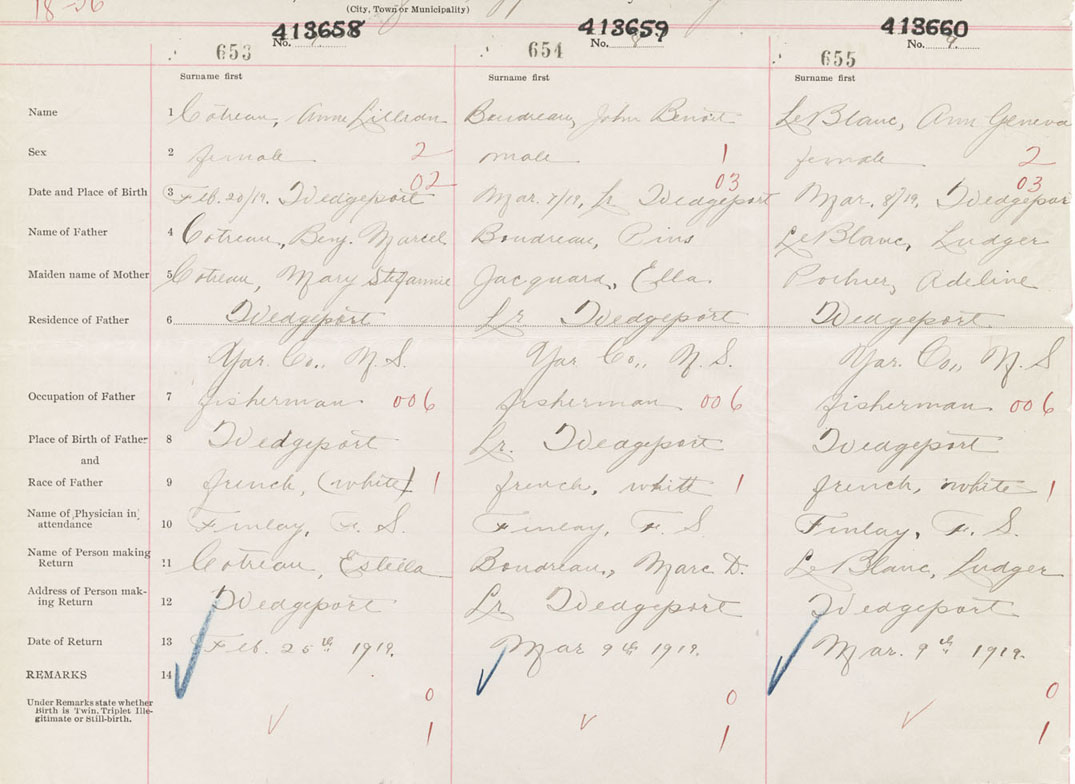 18-56
(City, Town or Municipality)
413658 413659 413660
653 No. 7 654 No. 8 655 No. 9.
Surname first Surname first Surname first
Name 1 Cotreau, Anne Lillian Boudreau, John Benoit LeBlanc, Ann Geneva
Sex 2 female 2 male 1 female 2
02 03 03
Date and Place of Birth 3 Feb. 20/19. Wedgeport Mar. 7/19, Lr Wedgeport Mar. 8/19, Wedgepor
Name of Father 4 Cotreau, Benj. Marcel Boudreau, Pius LeBlanc, Ludger
Maiden name of Mother 5 Cotreau, Mary Stefannie Jacquard, Ella Pothier, Adeline
Residence of Father 6 Wedgeport Lr. Wedgeport Wedgeport
Yar. Co., N.S. Yar. Co., N.S. Yar. Co., N.S
Occupation of Father 7 fisherman 006 fisherman 006 fisherman 006
Place of Birth of Father 8 Wedgeport Lr. Wedgeport Wedgeport
and
Race of Father 9 french, (white) 1 french, white 1 french, white 1
Name of Physician in attendance 10 Finlay, F. S. Finlay, F. S. Finlay, F. S.
Name of Person making Return 11 Cotreau, Estella Boudreau, Marc D. LeBlanc, Ludger
Address of Person making Return 12 Wedgeport Lr Wedgeport Wedgeport
Date of Return 13 Feb. 25th 1919. Mar 9th 1919. Mar. 9th 1919.
REMARKS 14
0 0 0
Under Remarks state whether
Birth is Twin, Triplet Ille-
gitimate or Still-birth.
1 1 1